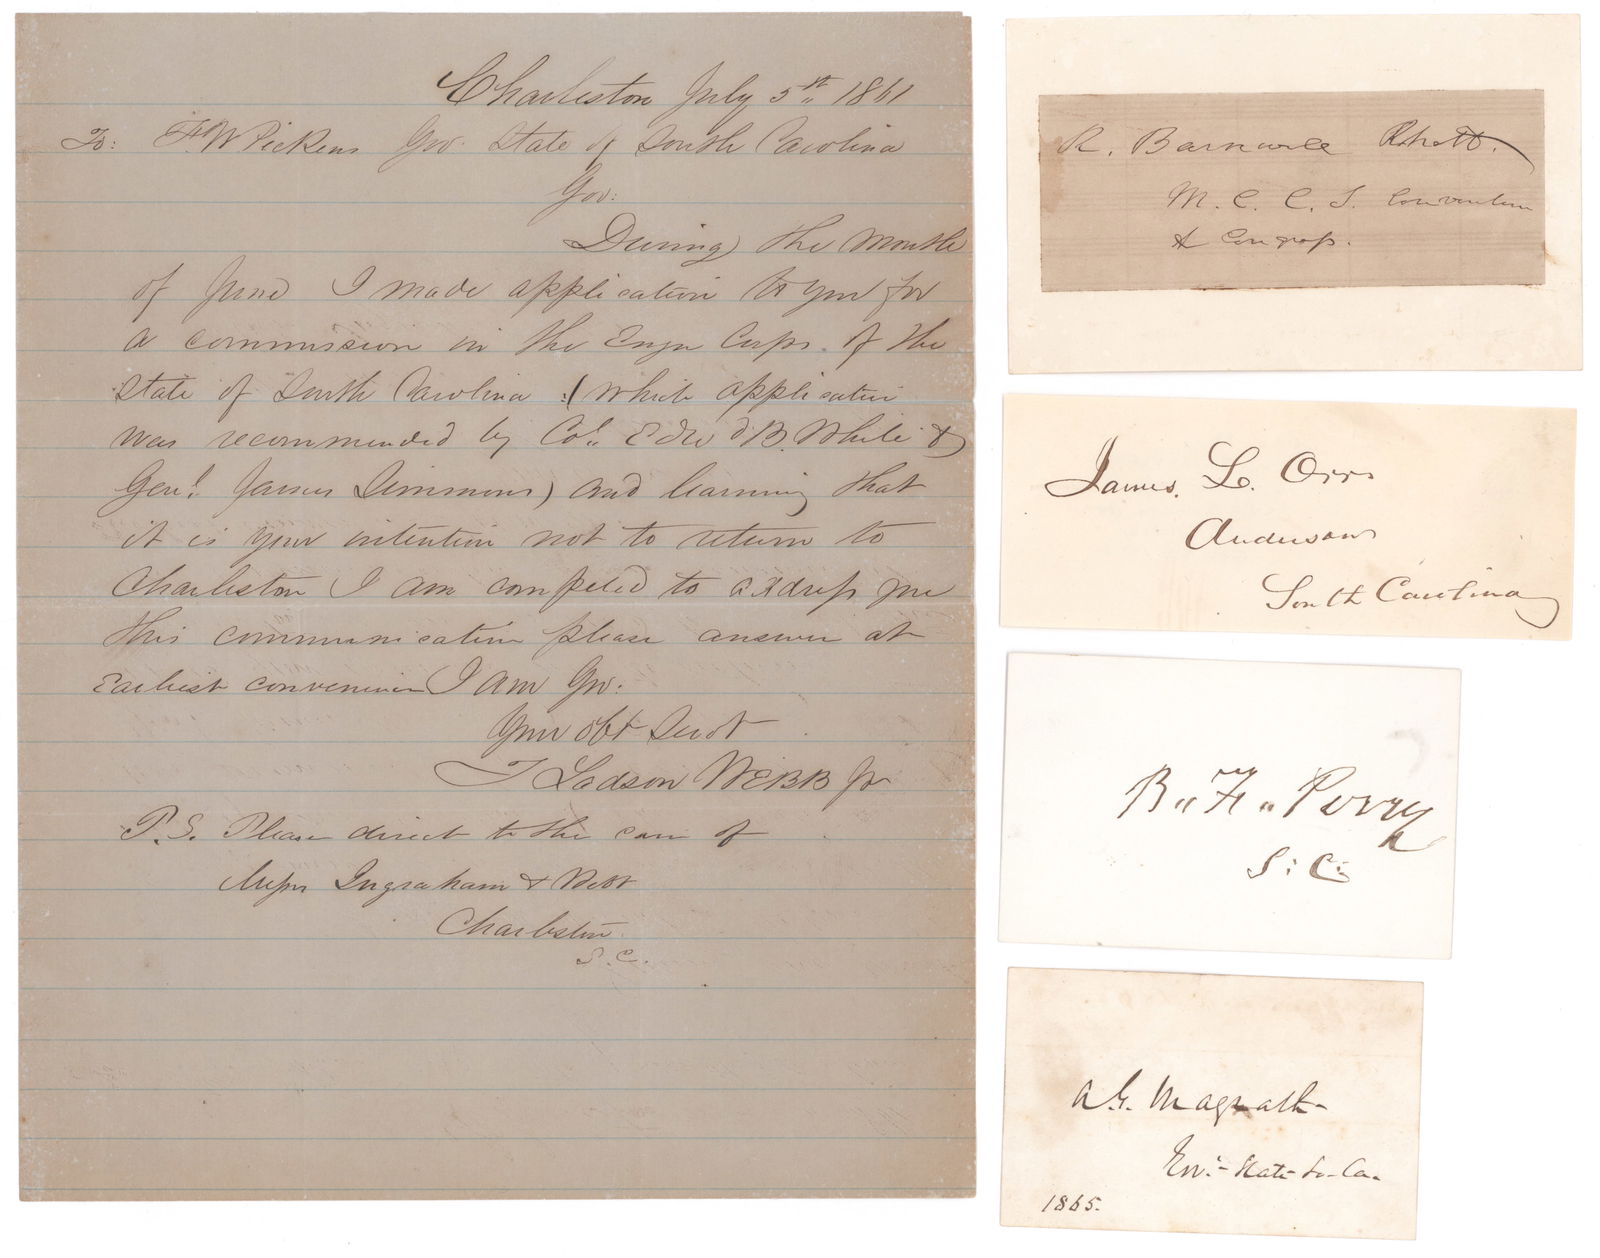 Charleston July 5th 1861
To: F. W Pickens Gov. State of South Carolina
Gov:
During the month
of June I made application to you for
a commission in the Engn Corps. of the
State of South Carolina :( which application
was recommended by Col. Edwd B. White &
Genl. James Simmons) and learning that
it is your intention not to return to
Charleston I am compeled to address you
this communication please answer at
Earliest convenience I am Gov:
Your Obt Servt
L Ladson WEBB Jr
P.S. Please direct to the care of
Messrs Ingraham & Webb
Charleston.
S. C.
R. Barnwell Rhett.
M. C. C. S. Convention
& Congress.
James. L. Orr
Anderson
South Carolina
B. F. Perry
S. C.
A G. Magrath
Gov. State So. Ca.
1865.